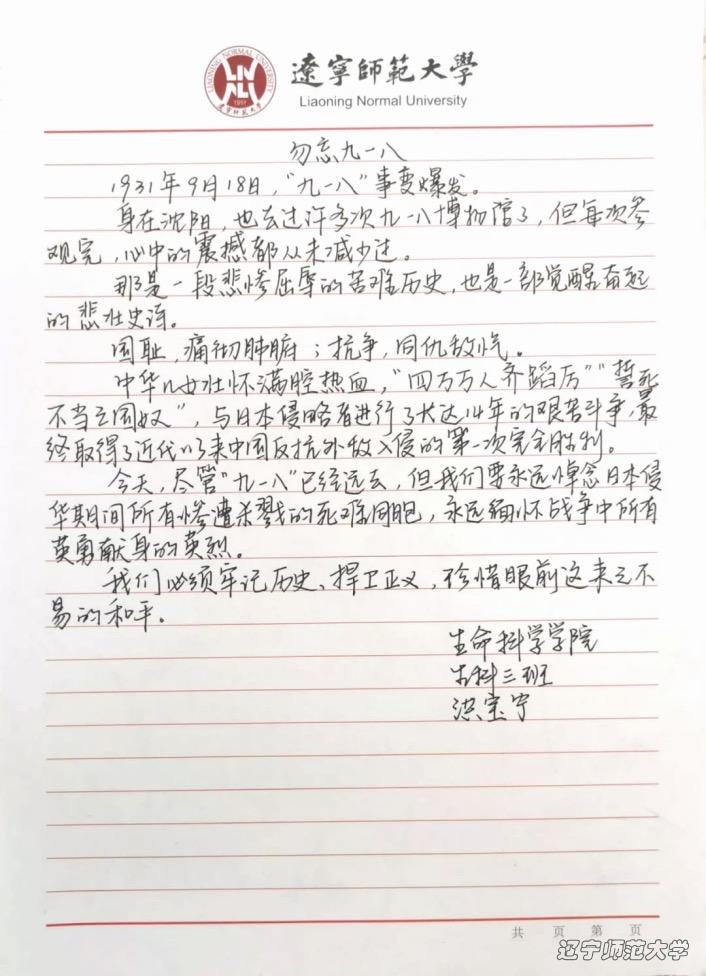 LIAONING NORMAL UNIVERSITY
1951
遼寧師範大學
Liaoning Normal University
勿忘九一八
1931年9月18日，"九一八"事变爆发。
身在沈阳，也去过许多次九一八博物馆了，但每次参
观完，心中的震撼都从未减少过。
那是一段悲惨屈辱的苦难历史，也是一部觉醒奋起
的悲壮史诗。
国耻，痛彻肺腑；抗争，同仇敌忾。
中华儿女壮怀满腔热血，"四万万人齐蹈厉""誓死
不当亡国奴"，与日本侵略者进行了长达14年的艰苦斗争，最
终取得了近代以来中国反抗外敌入侵的第一次完全胜利。
今天，尽管"九一八"已经远去，但我们要永远悼念日本侵
华期间所有惨遭杀戮的死难同胞，永远缅怀战争中所有
英勇献身的英烈。
我们必须牢记历史、捍卫正义，珍惜眼前这来之不
易的和平。
生命科学学院
生科三班
洪宝宁
共 页 第 页
辽宁师范大学